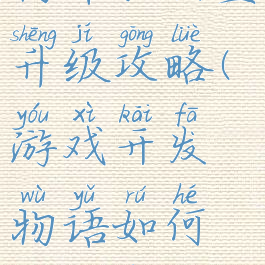 shēng jí gōng lüè
升级攻略(
yóu xì kāi fā
游戏开发
wù yǔ rú hé
物语如何